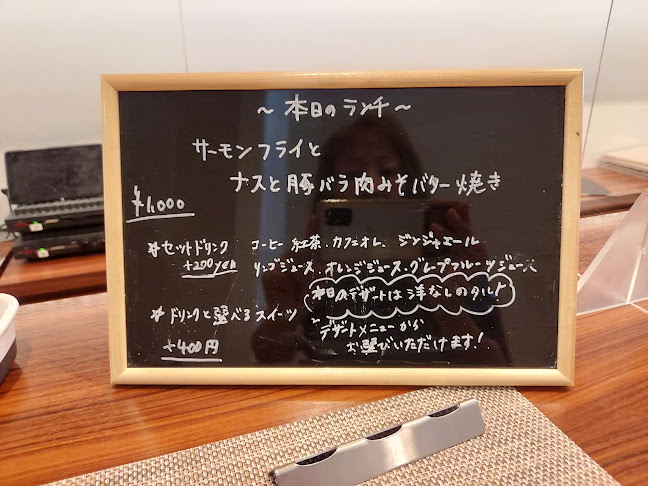 ～ 本日のランチ ～
サーモンフライと
ナスと豚バラ肉みそバター焼き
¥1,000
☆セットドリンク コーヒー 紅茶、カフェオレ、ジンジャエール
+200yen リンゴジュース、オレンジジュース、グレープフルーツジュース
本日のデザートは洋なしのタルト
☆ドリンクと選べるスイーツ
+400円
デザートメニューから
お選びいただけます!